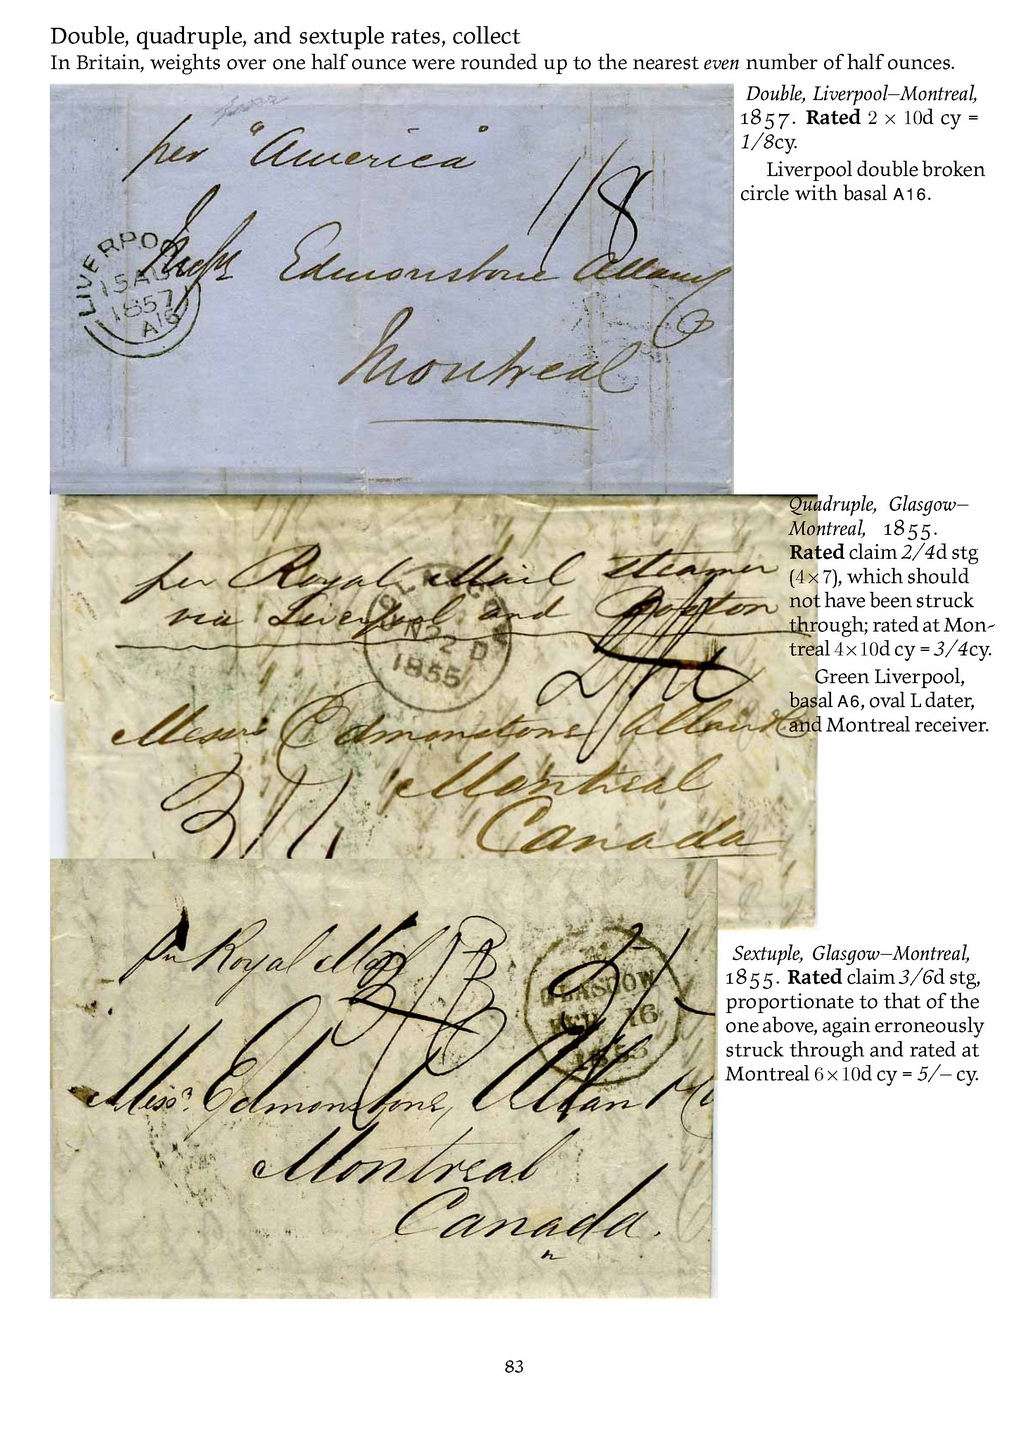 Double, quadruple, and sextuple rates, collect
In Britain, weights over one half ounce were rounded up to the nearest even number of half ounces.
Double, Liverpool–Montreal,
1857. Rated 2 × 10d cy =
1/8cy.
Liverpool double broken
circle with basal A16.
per "America"
1/8
LIVERPO
15 AU
1857
A16
Messrs Edmonstone Allan
Montreal
Quadruple, Glasgow–
Montreal, 1855.
Rated claim 2/4d stg
(4×7), which should
not have been struck
through; rated at Mon-
treal 4×10d cy = 3/4cy.
Green Liverpool,
basal A6, oval L dater,
and Montreal receiver.
per Royal Mail steamer
via Liverpool and Boston
22 D
1855
Messrs Edmonstone Allan &
Montreal
Canada
Sextuple, Glasgow–Montreal,
1855. Rated claim 3/6d stg,
proportionate to that of the
one above, again erroneously
struck through and rated at
Montreal 6×10d cy = 5/– cy.
Pr Royal Mail
GLASGOW
16
Messrs Edmonstone, Allan
Montreal
Canada.
83